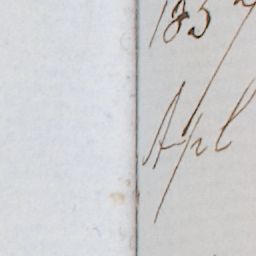 185
Apl